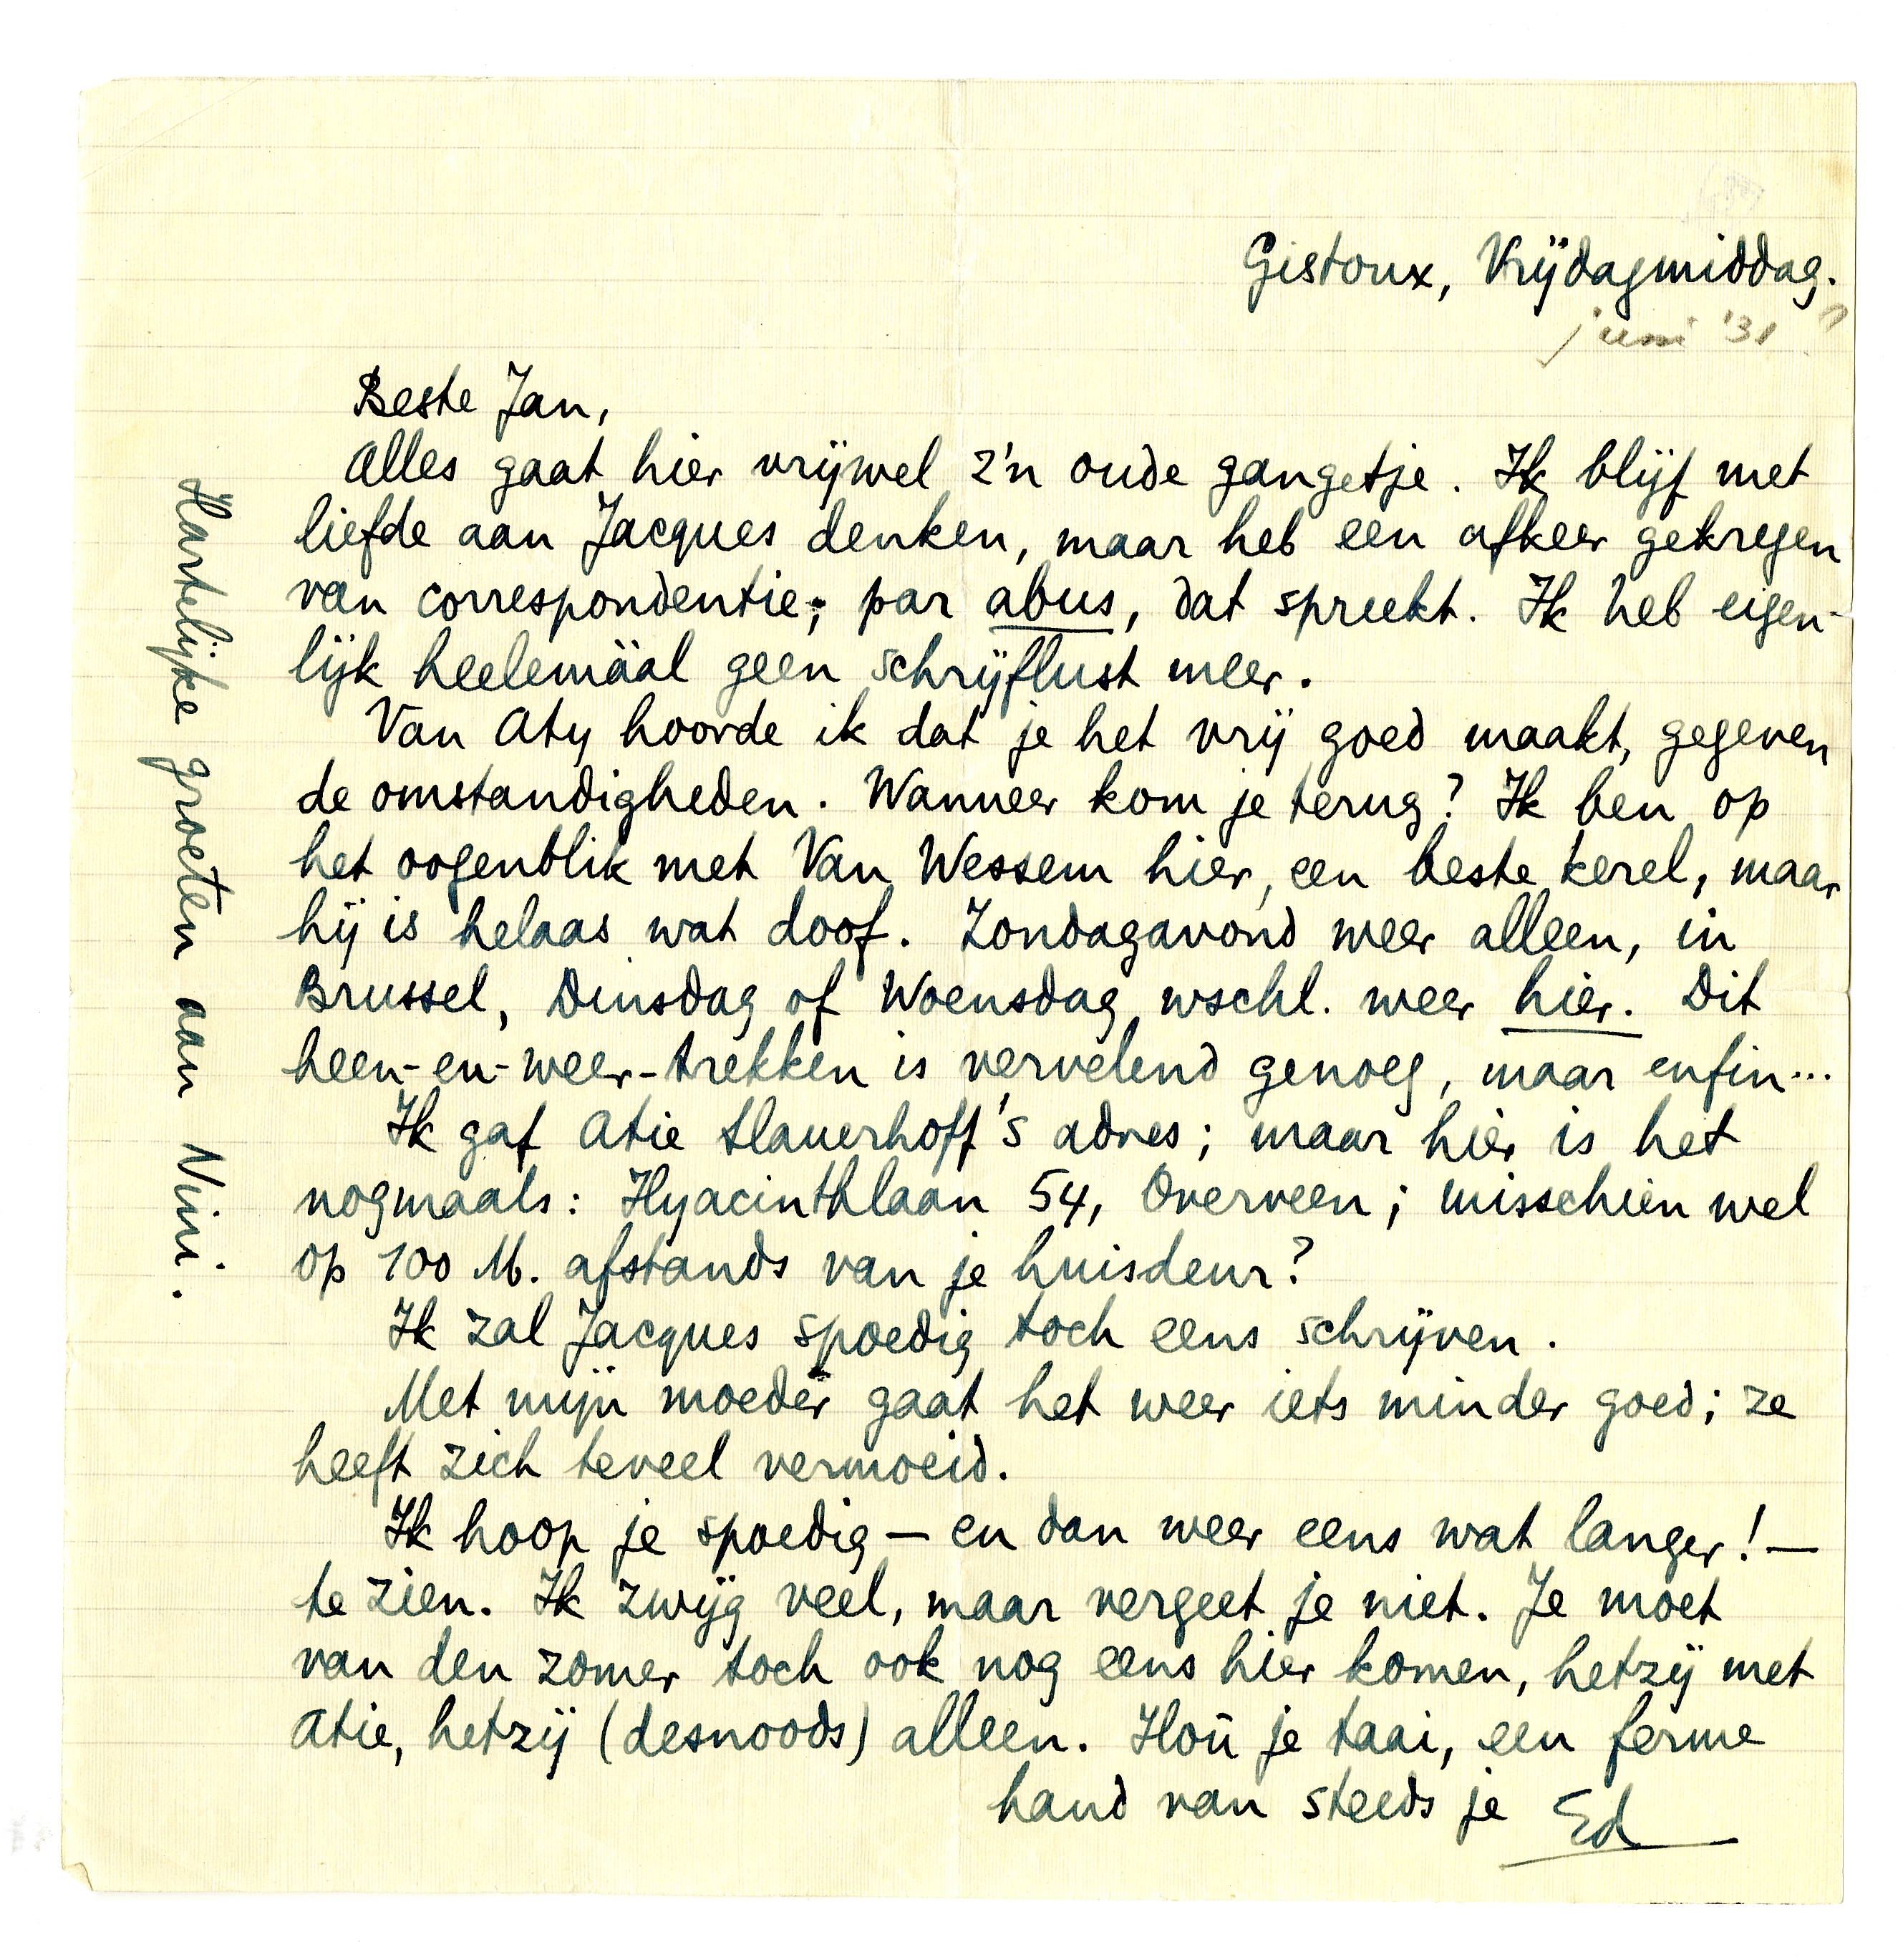 Gistoux, Vrijdagmiddag.
juni '31 ?
Beste Jan,
Alles gaat hier vrijwel z'n oude gangetje. Ik blijf met
liefde aan Jacques denken, maar heb een afkeer gekregen
van correspondentie; par abus, dat spreekt. Ik heb eigen-
lijk heelemäal geen schrijflust meer.
Van Aty hoorde ik dat je het vrij goed maakt, gegeven
de omstandigheden. Wanneer kom je terug? Ik ben op
het oogenblik met Van Wessem hier, een beste kerel, maar
hij is helaas wat doof. Zondagavond weer alleen, in
Brussel, Dinsdag of Woensdag wschl. weer hier. Dit
heen-en-weer-trekken is vervelend genoeg, maar enfin...
Ik gaf Atie Slauerhoff's adres; maar hier is het
nogmaals: Hyacinthlaan 54, Overveen; misschien wel
op 100 M. afstands van je huisdeur?
Ik zal Jacques spoedig toch eens schrijven.
Met mijn moeder gaat het weer iets minder goed; ze
heeft zich teveel vermoeid.
Ik hoop je spoedig — en dan weer eens wat langer! —
te zien. Ik zwijg veel, maar vergeet je niet. Je moet
van den zomer toch ook nog eens hier komen, hetzij met
Atie, hetzij (desnoods) alleen. Hou je taai, een ferme
hand van steeds je Ed
Hartelijke groeten aan Nini.